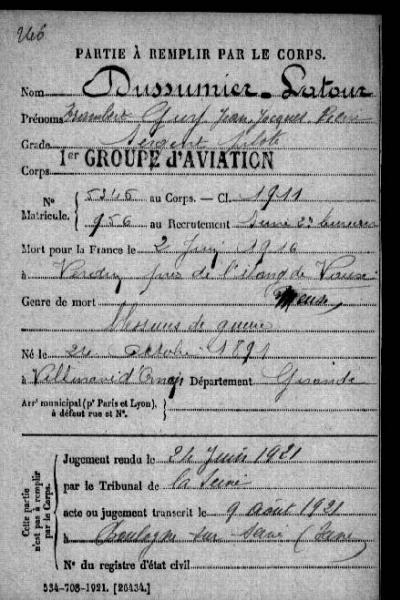 PARTIE À REMPLIR PAR LE CORPS.
Nom Dussumier-Latour
Prénoms Guy Jean Jacques Pierre
Grade Sergent pilote
Corps 1er GROUPE d'AVIATION
Nº Matricule. 5345 au Corps. — Cl. 1911
956 au Recrutement Seine 2e bureau
Mort pour la France le 2 Juin 1916
à Verdun près de l'étang de Vaux
Genre de mort Meuse
blessures de guerre
Né le octobre 1891
à Villenave d'Ornon Département Gironde
Arrt municipal (pr Paris et Lyon), à défaut rue et Nº.
Cette partie n'est pas à remplir par le Corps.
Jugement rendu le 24 Juin 1921
par le Tribunal de la Seine
acte ou jugement transcrit le 9 août 1921
à Boulogne sur Seine (Seine)
Nº du registre d'état civil
534-708-1921. [26434.]